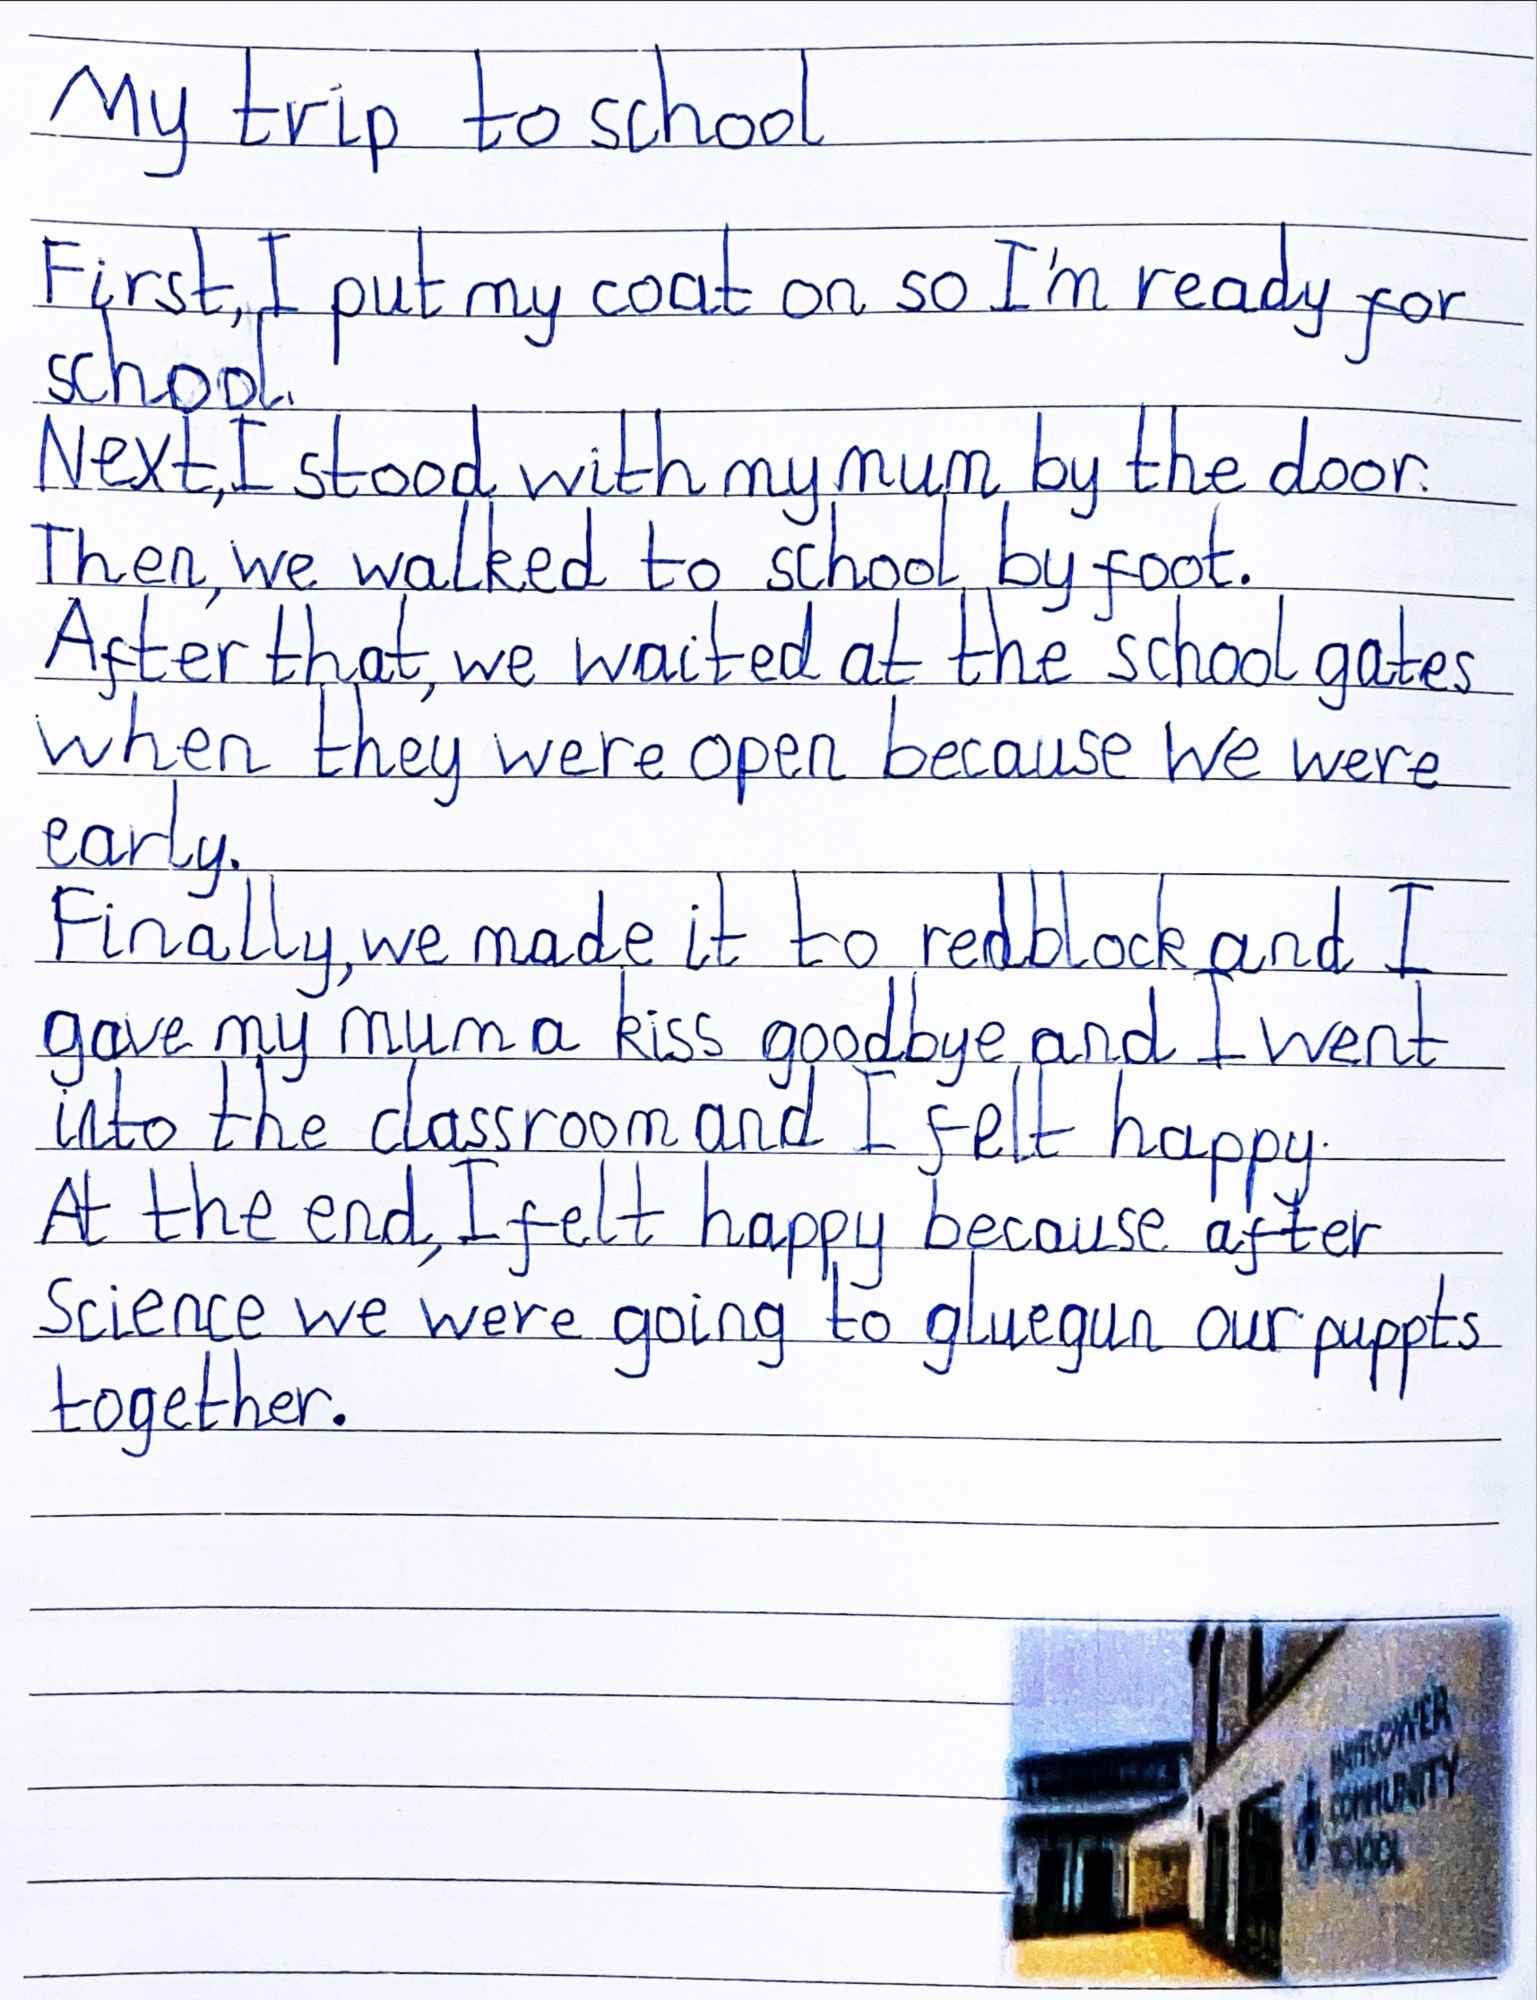 My trip to school
First, I put my coat on so I'm ready for
school.
Next, I stood with my mum by the door.
Then, we walked to school by foot.
After that, we waited at the school gates
when they were open because we were
early.
Finally, we made it to redblock and I
gave my mum a kiss goodbye and I went
into the classroom and I felt happy.
At the end, I felt happy because after
Science we were going to gluegun our puppts
together.
MAYFLOWER
COMMUNITY
SCHOOL